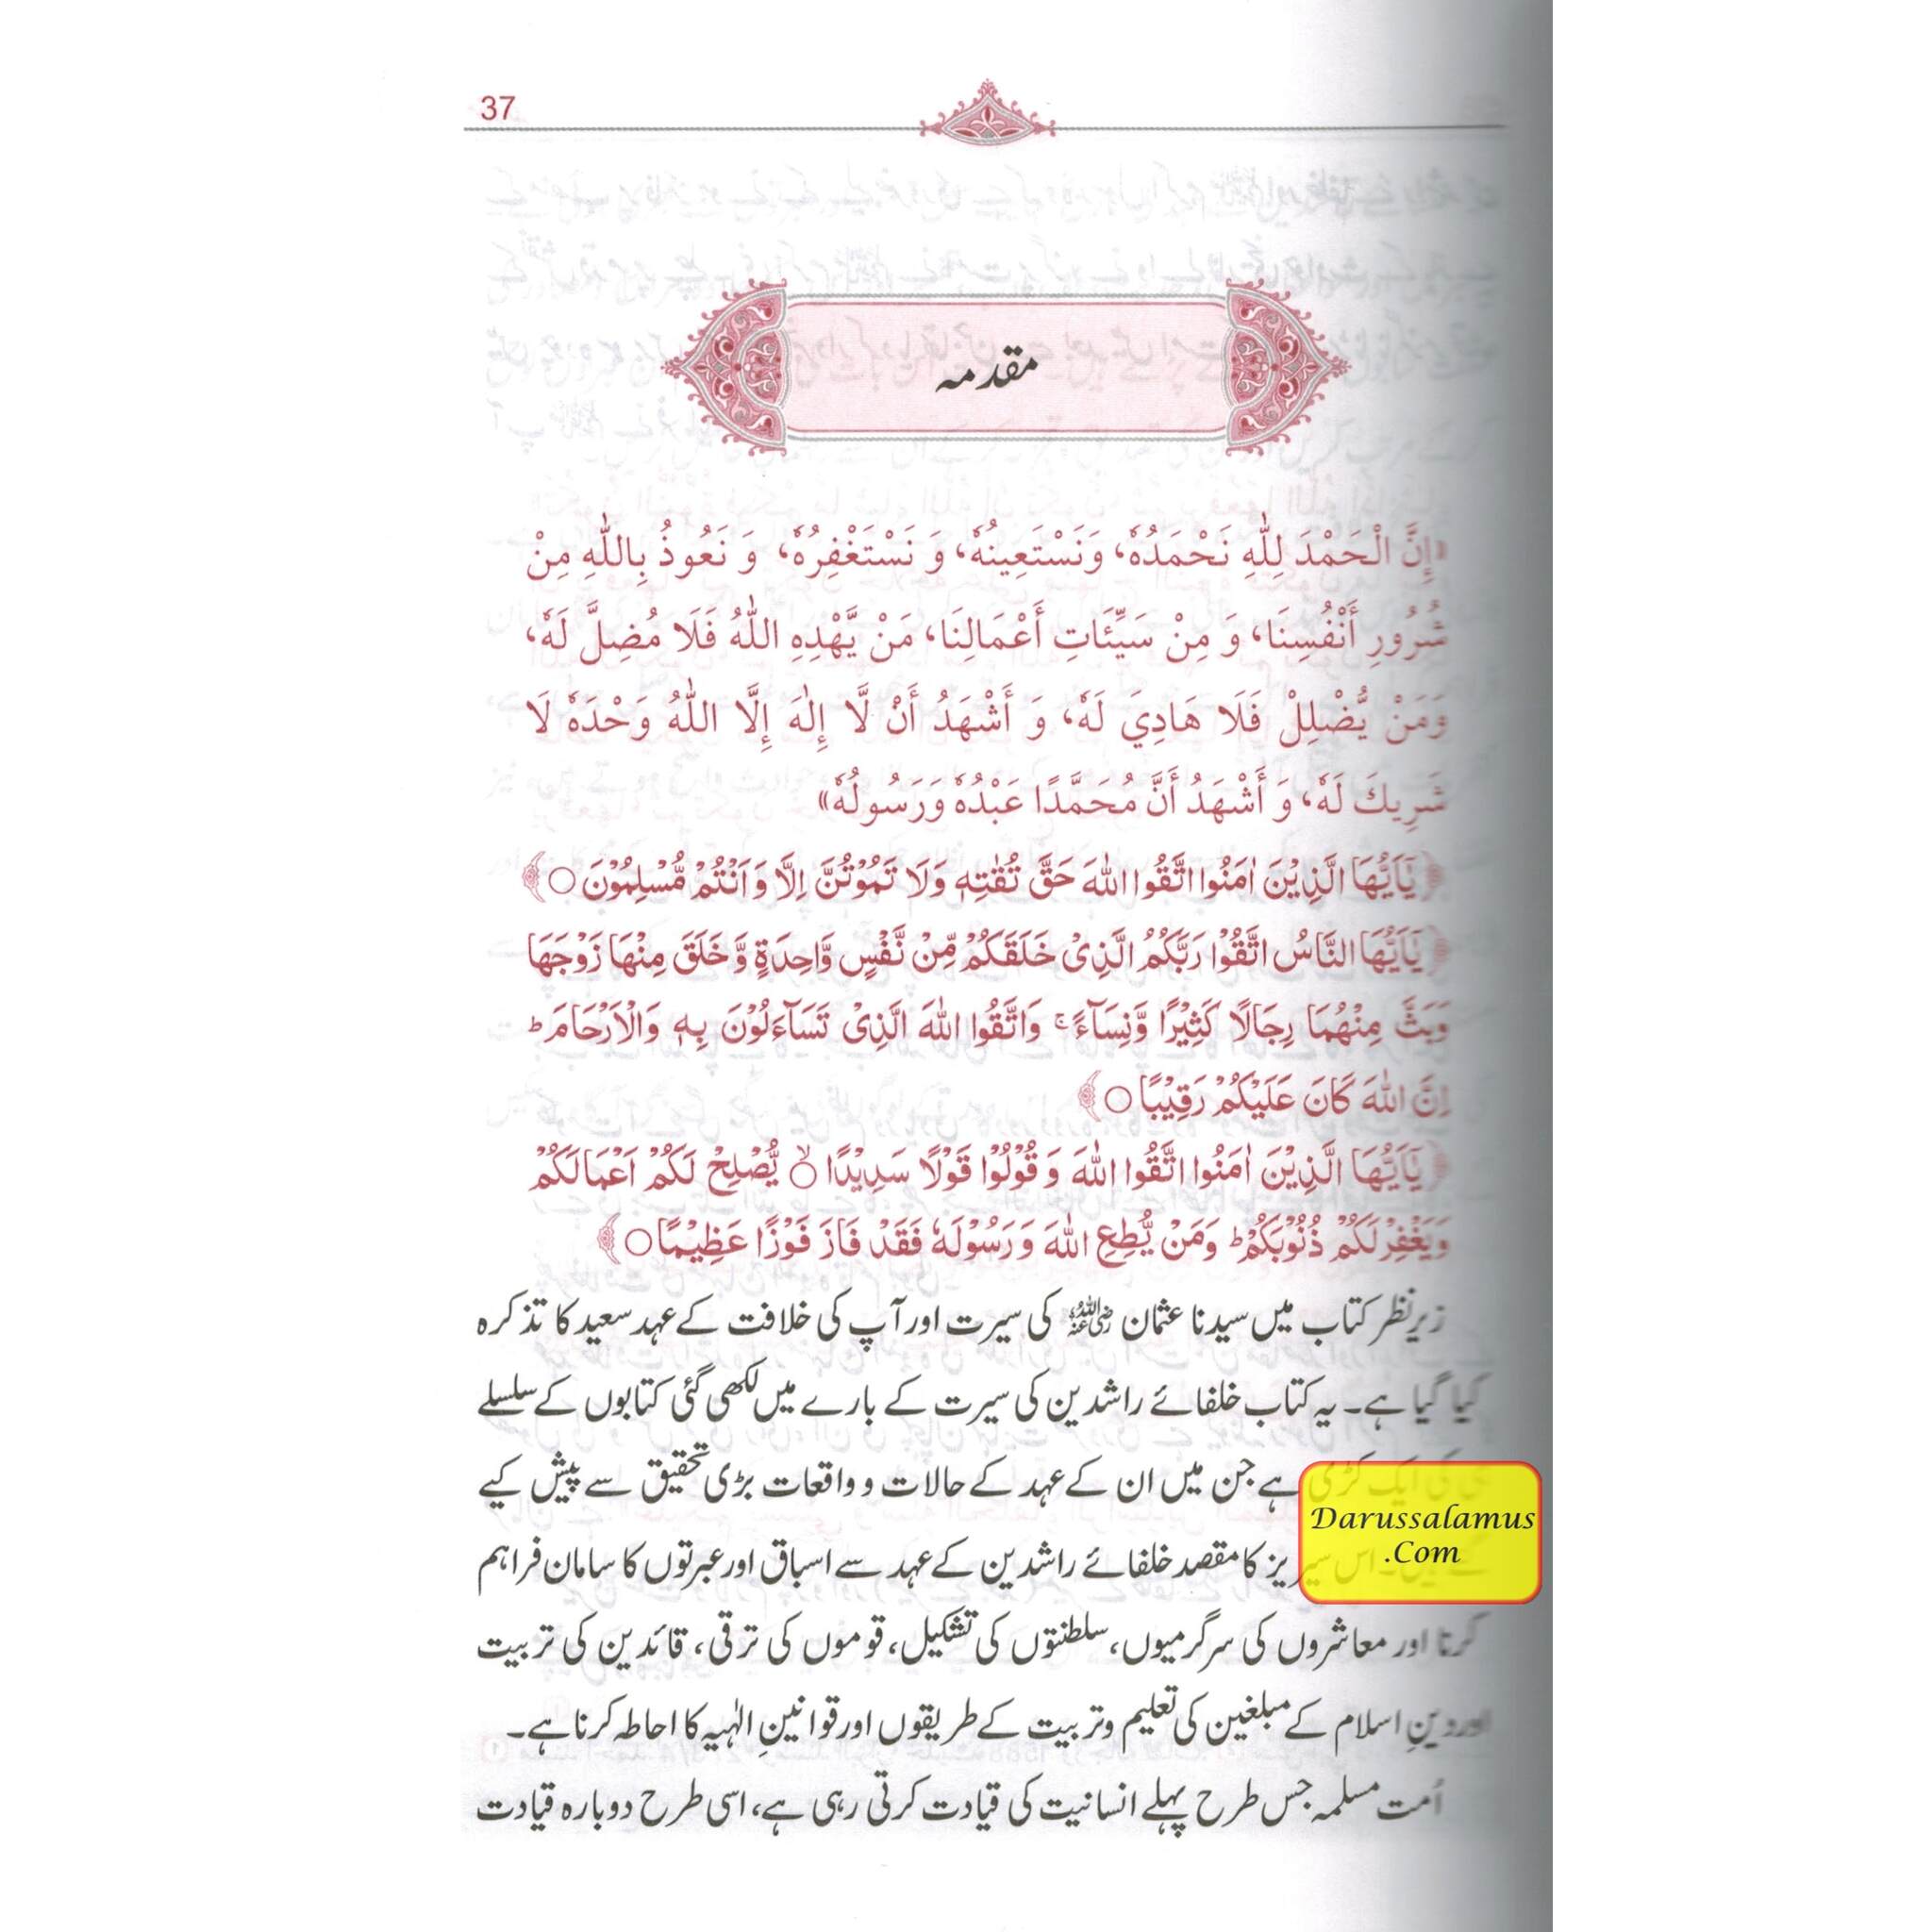 37
مقدمہ
«إِنَّ الْحَمْدَ لِلّٰهِ نَحْمَدُهٗ، وَنَسْتَعِينُهٗ، وَ نَسْتَغْفِرُهٗ، وَ نَعُوذُ بِاللّٰهِ مِنْ
شُرُورِ أَنْفُسِنَا، وَ مِنْ سَيِّئَاتِ أَعْمَالِنَا، مَنْ يَّهْدِهِ اللّٰهُ فَلَا مُضِلَّ لَهٗ،
وَمَنْ يُّضْلِلْ فَلَا هَادِيَ لَهٗ، وَ أَشْهَدُ أَنْ لَّا إِلٰهَ إِلَّا اللّٰهُ وَحْدَهٗ لَا
شَرِيكَ لَهٗ، وَ أَشْهَدُ أَنَّ مُحَمَّدًا عَبْدُهٗ وَرَسُولُهٗ»
﴿يٰٓاَيُّهَا الَّذِيْنَ اٰمَنُوا اتَّقُوا اللّٰهَ حَقَّ تُقٰتِهٖ وَلَا تَمُوْتُنَّ اِلَّا وَاَنْتُمْ مُّسْلِمُوْنَ ○﴾
﴿يٰٓاَيُّهَا النَّاسُ اتَّقُوْا رَبَّكُمُ الَّذِىْ خَلَقَكُمْ مِّنْ نَّفْسٍ وَّاحِدَةٍ وَّ خَلَقَ مِنْهَا زَوْجَهَا
وَبَثَّ مِنْهُمَا رِجَالًا كَثِيْرًا وَّنِسَآءً ۚ وَاتَّقُوا اللّٰهَ الَّذِىْ تَسَآءَلُوْنَ بِهٖ وَالْاَرْحَامَ ؕ
اِنَّ اللّٰهَ كَانَ عَلَيْكُمْ رَقِيْبًا ○﴾
﴿يٰٓاَيُّهَا الَّذِيْنَ اٰمَنُوا اتَّقُوا اللّٰهَ وَ قُوْلُوْا قَوْلًا سَدِيْدًا ○ۙ يُّصْلِحْ لَكُمْ اَعْمَالَكُمْ
وَيَغْفِرْ لَكُمْ ذُنُوْبَكُمْ ؕ وَمَنْ يُّطِعِ اللّٰهَ وَ رَسُوْلَهٗ فَقَدْ فَازَ فَوْزًا عَظِيْمًا ○﴾
زیر نظر کتاب میں سیدنا عثمان رضی اللہ عنہ کی سیرت اور آپ کی خلافت کے عہد سعید کا تذکرہ
کیا گیا ہے۔ یہ کتاب خلفائے راشدین کی سیرت کے بارے میں لکھی گئی کتابوں کے سلسلے
ہی کی ایک کڑی ہے جن میں ان کے عہد کے حالات و واقعات بڑی تحقیق سے پیش کیے
گئے ہیں۔ اس سیریز کا مقصد خلفائے راشدین کے عہد سے اسباق اور عبرتوں کا سامان فراہم
کرنا اور معاشروں کی سرگرمیوں، سلطنتوں کی تشکیل، قوموں کی ترقی، قائدین کی تربیت
اور دینِ اسلام کے مبلغین کی تعلیم و تربیت کے طریقوں اور قوانینِ الٰہیہ کا احاطہ کرنا ہے۔
اُمت مسلمہ جس طرح پہلے انسانیت کی قیادت کرتی رہی ہے، اسی طرح دوبارہ قیادت
Darussalamus
.Com